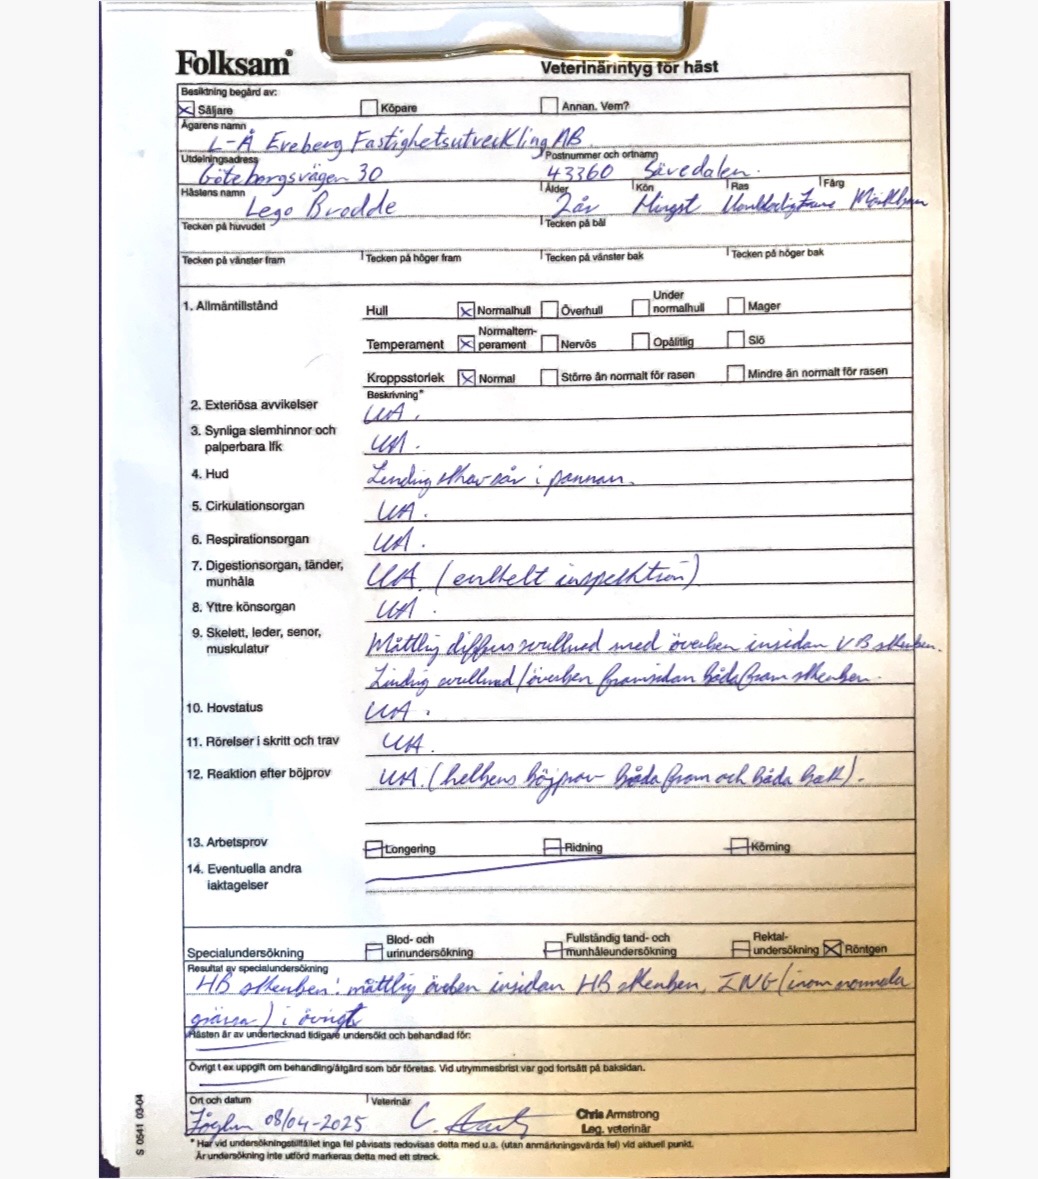 Folksam®
Veterinärintyg för häst
Besiktning begärd av:
Säljare Köpare Annan. Vem?
Ägarens namn
L-Å Ereberg Fastighetsutveckling AB
Utdelningsadress Postnummer och ortnamn
Göteborgsvägen 30 43360 Sävedalen.
Hästens namn Ålder Kön Ras Färg
Lego Brodde 2år Hingst
Tecken på huvudet Tecken på bål
Tecken på vänster fram Tecken på höger fram Tecken på vänster bak Tecken på höger bak
1. Allmäntillstånd Hull Normalhull Överhull Under normalhull Mager
Temperament Normaltem-perament Nervös Opålitlig Slö
Kroppsstorlek Normal Större än normalt för rasen Mindre än normalt för rasen
Beskrivning*
2. Exteriösa avvikelser UA.
3. Synliga slemhinnor och
palperbara lfk UA.
4. Hud Lindrig skavsår i pannan.
5. Cirkulationsorgan UA.
6. Respirationsorgan UA.
7. Digestionsorgan, tänder,
munhåla UA. (enkelt inspektion)
8. Yttre könsorgan UA.
9. Skelett, leder, senor,
muskulatur Måttlig diffus svullnad med överben insidan VB skenben.
Lindrig svullnad/överben framsidan båda fram skenben.
10. Hovstatus UA.
11. Rörelser i skritt och trav UA.
12. Reaktion efter böjprov UA. (helbens böjprov båda fram och båda bak).
13. Arbetsprov Longering Ridning Körning
14. Eventuella andra
iaktagelser
Specialundersökning Blod- och urinundersökning Fullständig tand- och munhåleundersökning Rektal-undersökning Röntgen
Resultat av specialundersökning
HB skenben: måttlig överben insidan HB skenben, ING (inom normala
gränsa) i övrigt
Hästen är av undertecknad tidigare undersökt och behandlad för:
Övrigt t ex uppgift om behandling/åtgärd som bör företas. Vid utrymmesbrist var god fortsätt på baksidan.
Ort och datum Veterinär
08/04-2025 Chris Armstrong
Leg. veterinär
* Har vid undersökningstillfället inga fel påvisats redovisas detta med u.a. (utan anmärkningsvärda fel) vid aktuell punkt.
Är undersökning inte utförd markeras detta med ett streck.
S 0541 03-04